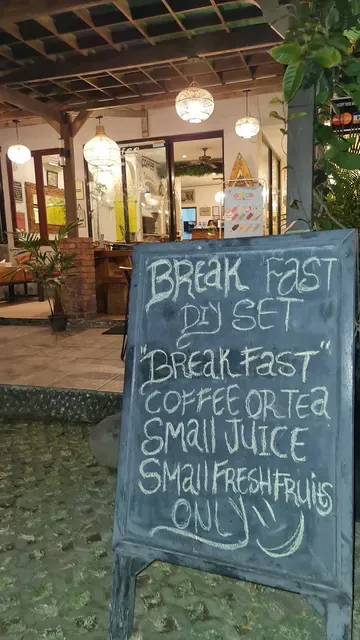 BREAK FAST
DIY SET
"BREAK FAST"
COFFEE OR TEA
Small JUICE
Small FRESH FRUITS
ONLY